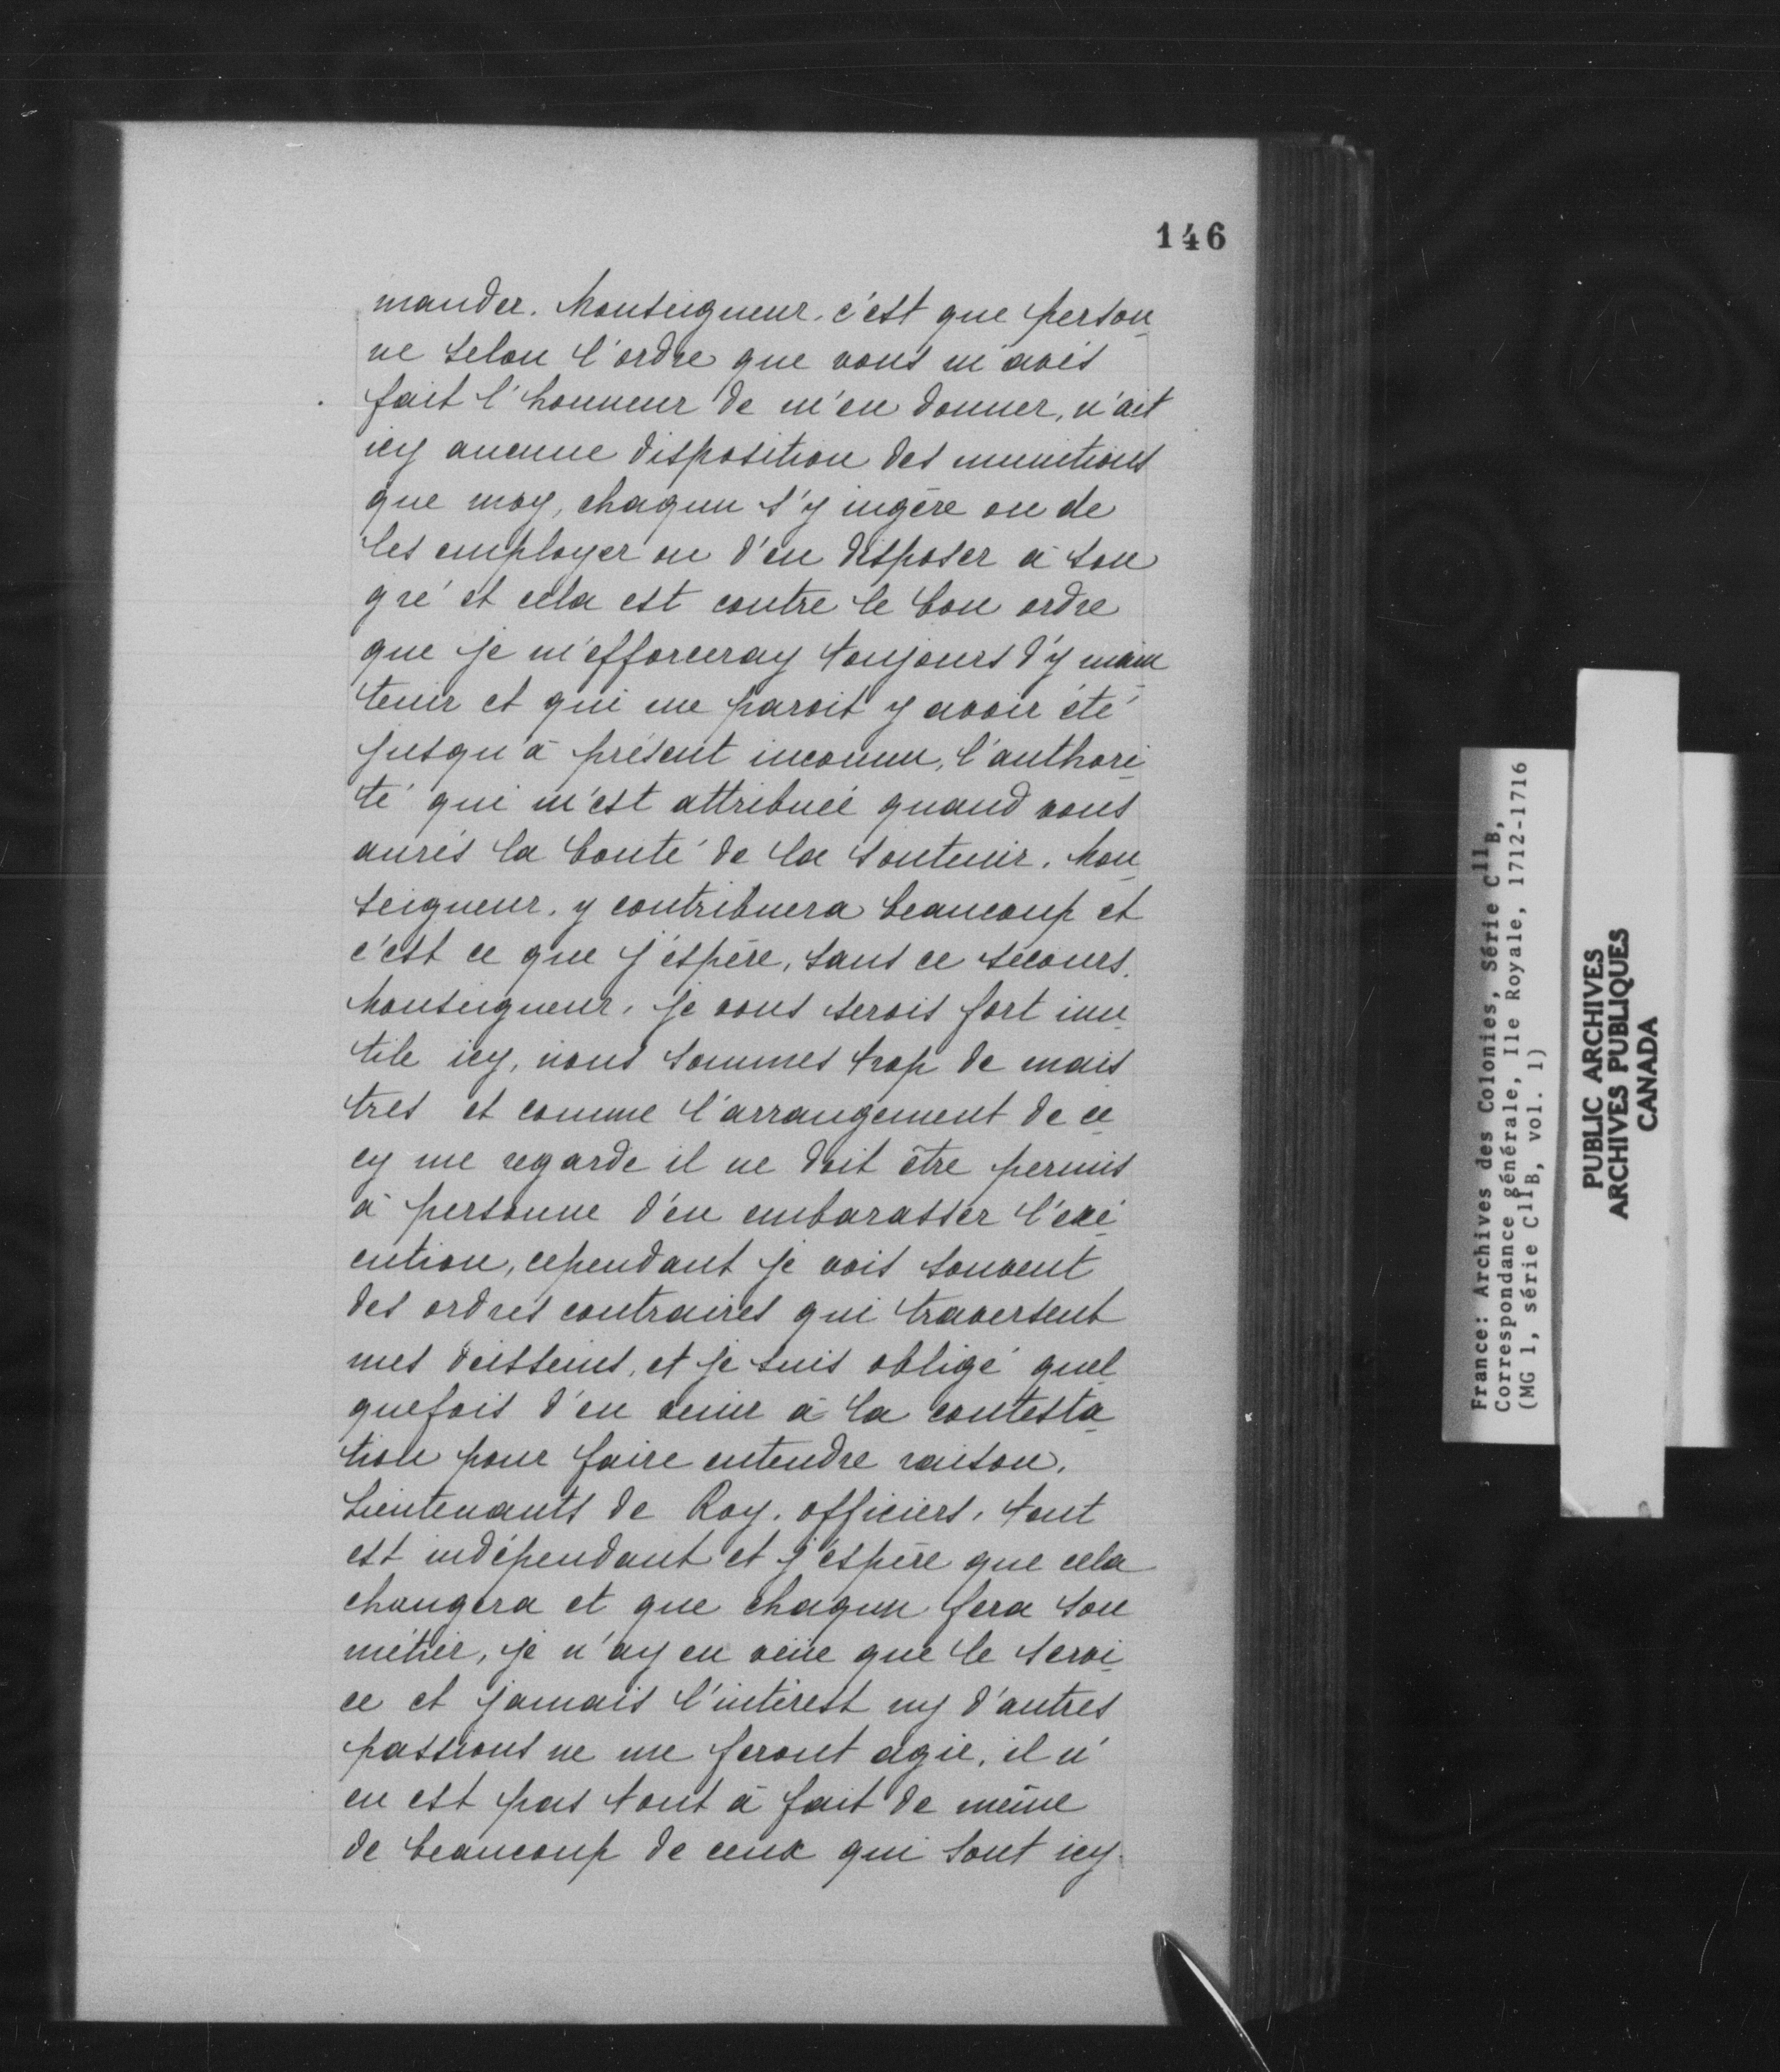 146
mander. Monseigneur, c'est que person
ne selon l'ordre que vous m'avés
fait l'honneur de m'en donner, n'ait
icy aucune disposition des munitions
que moy, chaqun s'y ingère ou de
les employer ou d'en disposer à son
gré et cela est contre le bon ordre
que je m'efforceray toujours d'y main
tenir et qui me paroit y avoir été
jusqu'à présent inconnu, l'authori
té qui m'est attribuée quand vous
aurés la bonté de la soutenir, Mon
seigneur, y contribuera beaucoup et
c'est ce que j'éspère, sans ce secours,
Monseigneur, je vous serois fort inu
tile icy, nous sommes trop de mais
tres et comme l'arrangement de ce
cy me regarde il ne doit être permis
à personne d'en embarasser l'exé
cution, cependant je vois souvent
des ordres contraires qui traversent
mes desseins, et je suis obligé quel
quefois d'en venir à la contesta
tion pour faire entendre raison.
Lieutenants de Roy, officiers, tout
est indépendant et j'éspère que cela
changera et que chaqun fera son
métier, je n'ay en veüe que le servi
ce et jamais l'intérest ny d'autres
passions ne me feront agir, il n'
en est pas tout à fait de même
de beaucoup de ceux qui sont icy.
France: Archives des Colonies, Série C11B,
Correspondance générale, Ile Royale, 1712-1716
(MG 1, série C11B, vol. 1)
PUBLIC ARCHIVES
ARCHIVES PUBLIQUES
CANADA